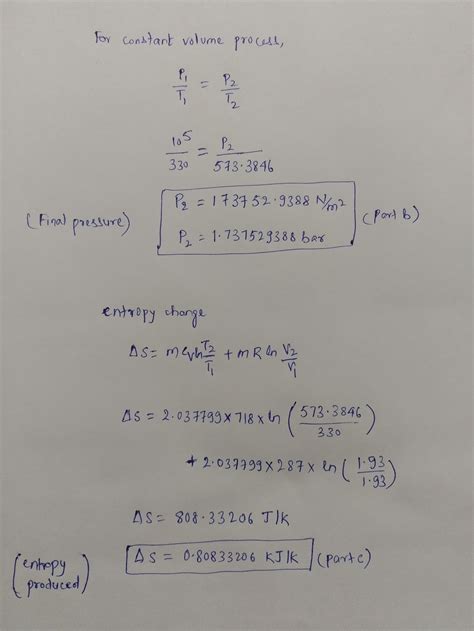 For constant volume process,
P₁/T₁ = P₂/T₂
10⁵/330 = P₂/573.3846
(Final pressure) P₂ = 173752.9388 N/m² (Part b)
P₂ = 1.737529388 bar
entropy change
ΔS = m Cv ln T₂/T₁ + m R ln V₂/V₁
ΔS = 2.037799 × 718 × ln (573.3846/330)
+ 2.037799 × 287 × ln (1.93/1.93)
ΔS = 808.33206 J/K
(entropy produced) ΔS = 0.80833206 KJ/K (part c)